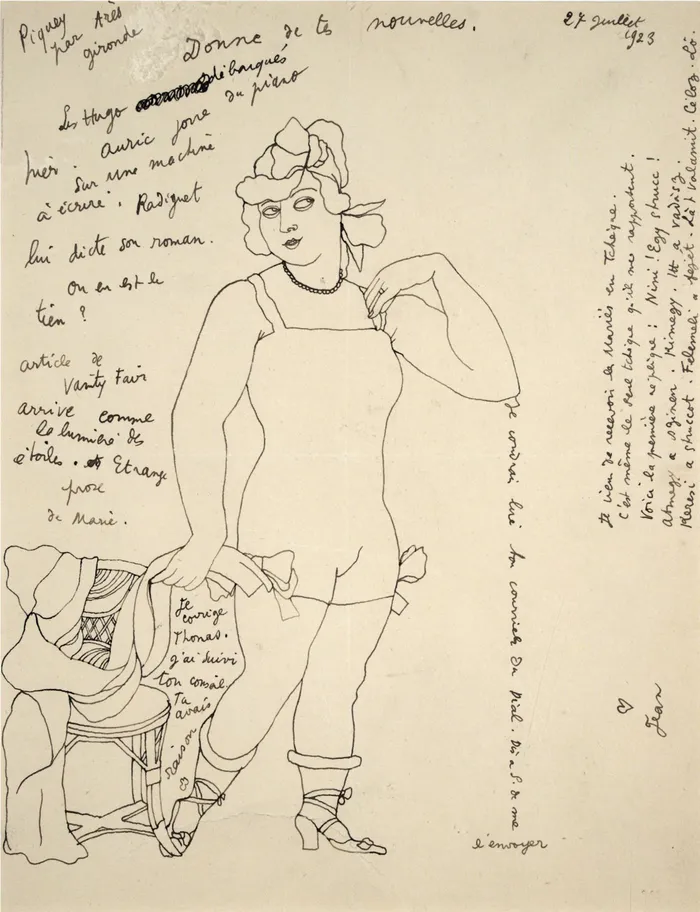 Piquey
par Arès
gironde
Donne de tes nouvelles.
27 juillet
1923
Les Hugo débarqués
hier. auric joue du piano
sur une machine
à écrire. Radiguet
lui dicte son roman.
Ou en est le
tien ?
article de
Vanity Fair
arrive comme
la lumière des
étoiles. Etrange
prose
de Marie.
Je
corrige
Thomas.
j'ai suivi
ton conseil
Tu
avais
raison
Je voudrais lire les courriers du Dial. Dis à S. de me
l'envoyer
Je viens de recevoir les Mariés en Tchèque.
C'est même le seul tchèque qu'ils me rapportent.
Voici la première réplique : Nini ! Egy strucc !
Atmegy a szinen. Kimegy. Itt a vadász.
Keresi a struccot. Felemeli a fejét. Lát valamit. Céloz. Lö.
Jean